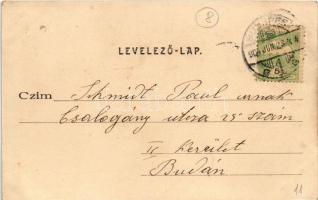 8
LEVELEZŐ-LAP.
Czim Schmidt Paul urnak
Csalogány utcza 25 szám
kerület
Budán
11